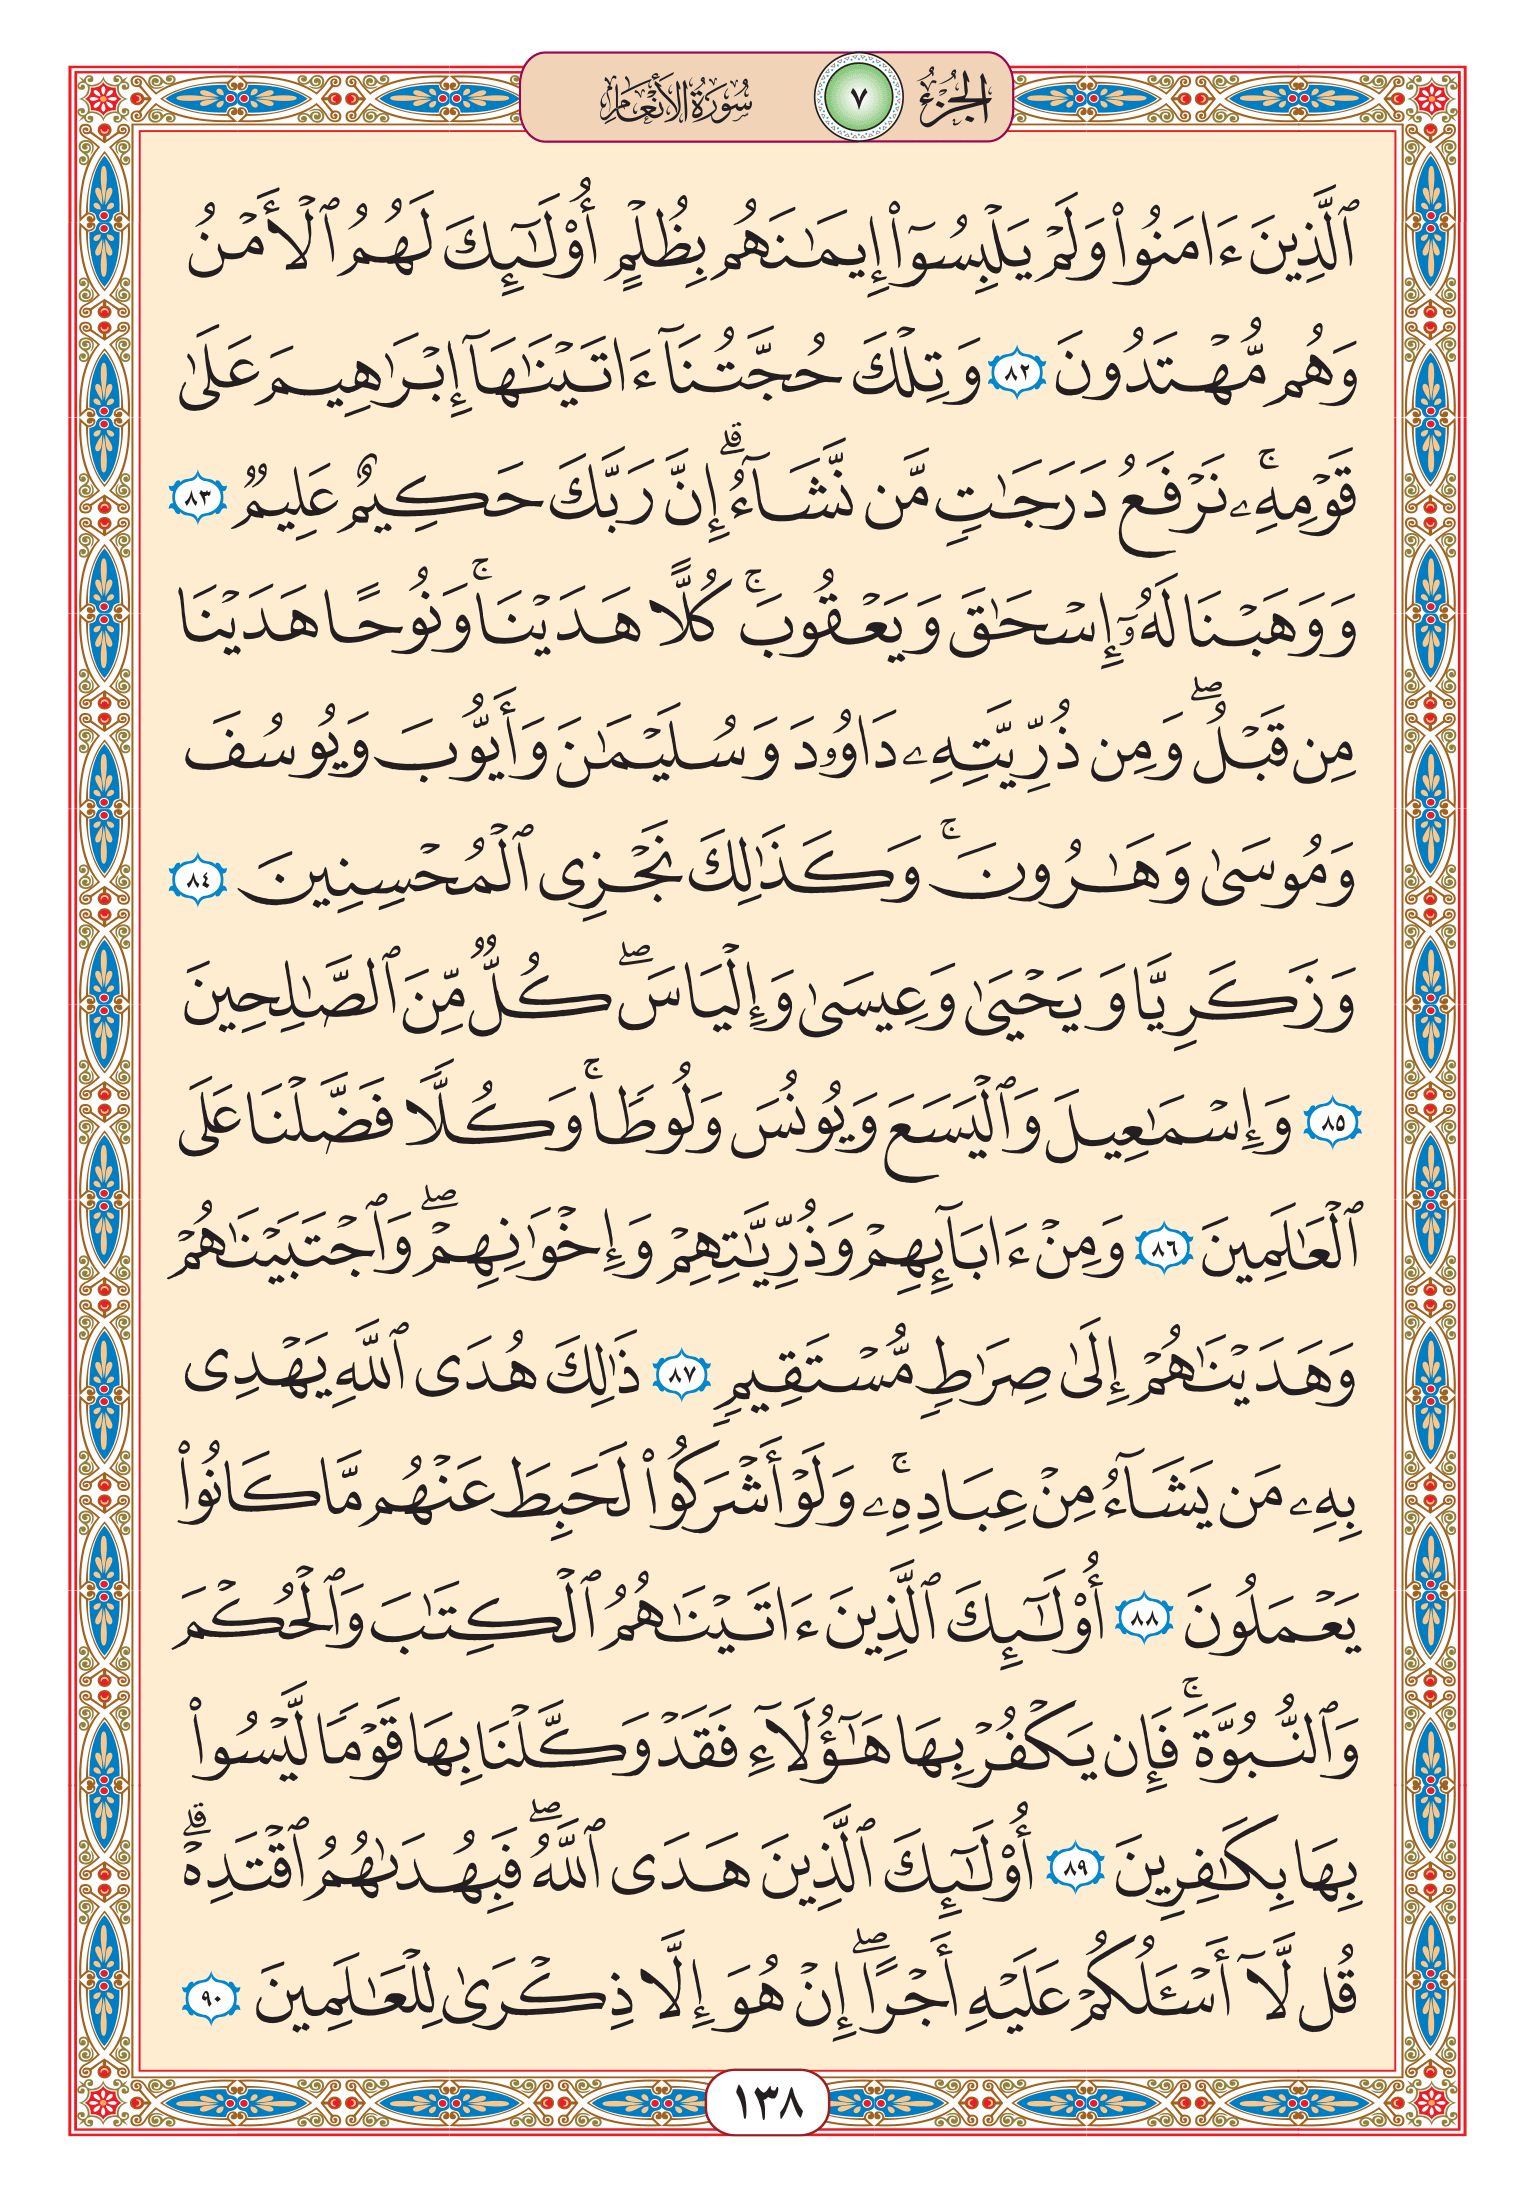 الجزء ٧ سورة الأنعام
ٱلَّذِينَ ءَامَنُوا۟ وَلَمْ يَلْبِسُوٓا۟ إِيمَـٰنَهُم بِظُلْمٍ أُو۟لَـٰٓئِكَ لَهُمُ ٱلْأَمْنُ
وَهُم مُّهْتَدُونَ ٨٢ وَتِلْكَ حُجَّتُنَآ ءَاتَيْنَـٰهَآ إِبْرَٰهِيمَ عَلَىٰ
قَوْمِهِۦ ۚ نَرْفَعُ دَرَجَـٰتٍ مَّن نَّشَآءُ ۗ إِنَّ رَبَّكَ حَكِيمٌ عَلِيمٌ ٨٣
وَوَهَبْنَا لَهُۥٓ إِسْحَـٰقَ وَيَعْقُوبَ ۚ كُلًّا هَدَيْنَا ۚ وَنُوحًا هَدَيْنَا
مِن قَبْلُ ۖ وَمِن ذُرِّيَّتِهِۦ دَاوُۥدَ وَسُلَيْمَـٰنَ وَأَيُّوبَ وَيُوسُفَ
وَمُوسَىٰ وَهَـٰرُونَ ۚ وَكَذَٰلِكَ نَجْزِى ٱلْمُحْسِنِينَ ٨٤
وَزَكَرِيَّا وَيَحْيَىٰ وَعِيسَىٰ وَإِلْيَاسَ ۖ كُلٌّ مِّنَ ٱلصَّـٰلِحِينَ
٨٥ وَإِسْمَـٰعِيلَ وَٱلْيَسَعَ وَيُونُسَ وَلُوطًا ۚ وَكُلًّا فَضَّلْنَا عَلَى
ٱلْعَـٰلَمِينَ ٨٦ وَمِنْ ءَابَآئِهِمْ وَذُرِّيَّـٰتِهِمْ وَإِخْوَٰنِهِمْ ۖ وَٱجْتَبَيْنَـٰهُمْ
وَهَدَيْنَـٰهُمْ إِلَىٰ صِرَٰطٍ مُّسْتَقِيمٍ ٨٧ ذَٰلِكَ هُدَى ٱللَّهِ يَهْدِى
بِهِۦ مَن يَشَآءُ مِنْ عِبَادِهِۦ ۚ وَلَوْ أَشْرَكُوا۟ لَحَبِطَ عَنْهُم مَّا كَانُوا۟
يَعْمَلُونَ ٨٨ أُو۟لَـٰٓئِكَ ٱلَّذِينَ ءَاتَيْنَـٰهُمُ ٱلْكِتَـٰبَ وَٱلْحُكْمَ
وَٱلنُّبُوَّةَ ۚ فَإِن يَكْفُرْ بِهَا هَـٰٓؤُلَآءِ فَقَدْ وَكَّلْنَا بِهَا قَوْمًا لَّيْسُوا۟
بِهَا بِكَـٰفِرِينَ ٨٩ أُو۟لَـٰٓئِكَ ٱلَّذِينَ هَدَى ٱللَّهُ ۖ فَبِهُدَىٰهُمُ ٱقْتَدِهْ ۗ
قُل لَّآ أَسْـَٔلُكُمْ عَلَيْهِ أَجْرًا ۖ إِنْ هُوَ إِلَّا ذِكْرَىٰ لِلْعَـٰلَمِينَ ٩٠
١٣٨